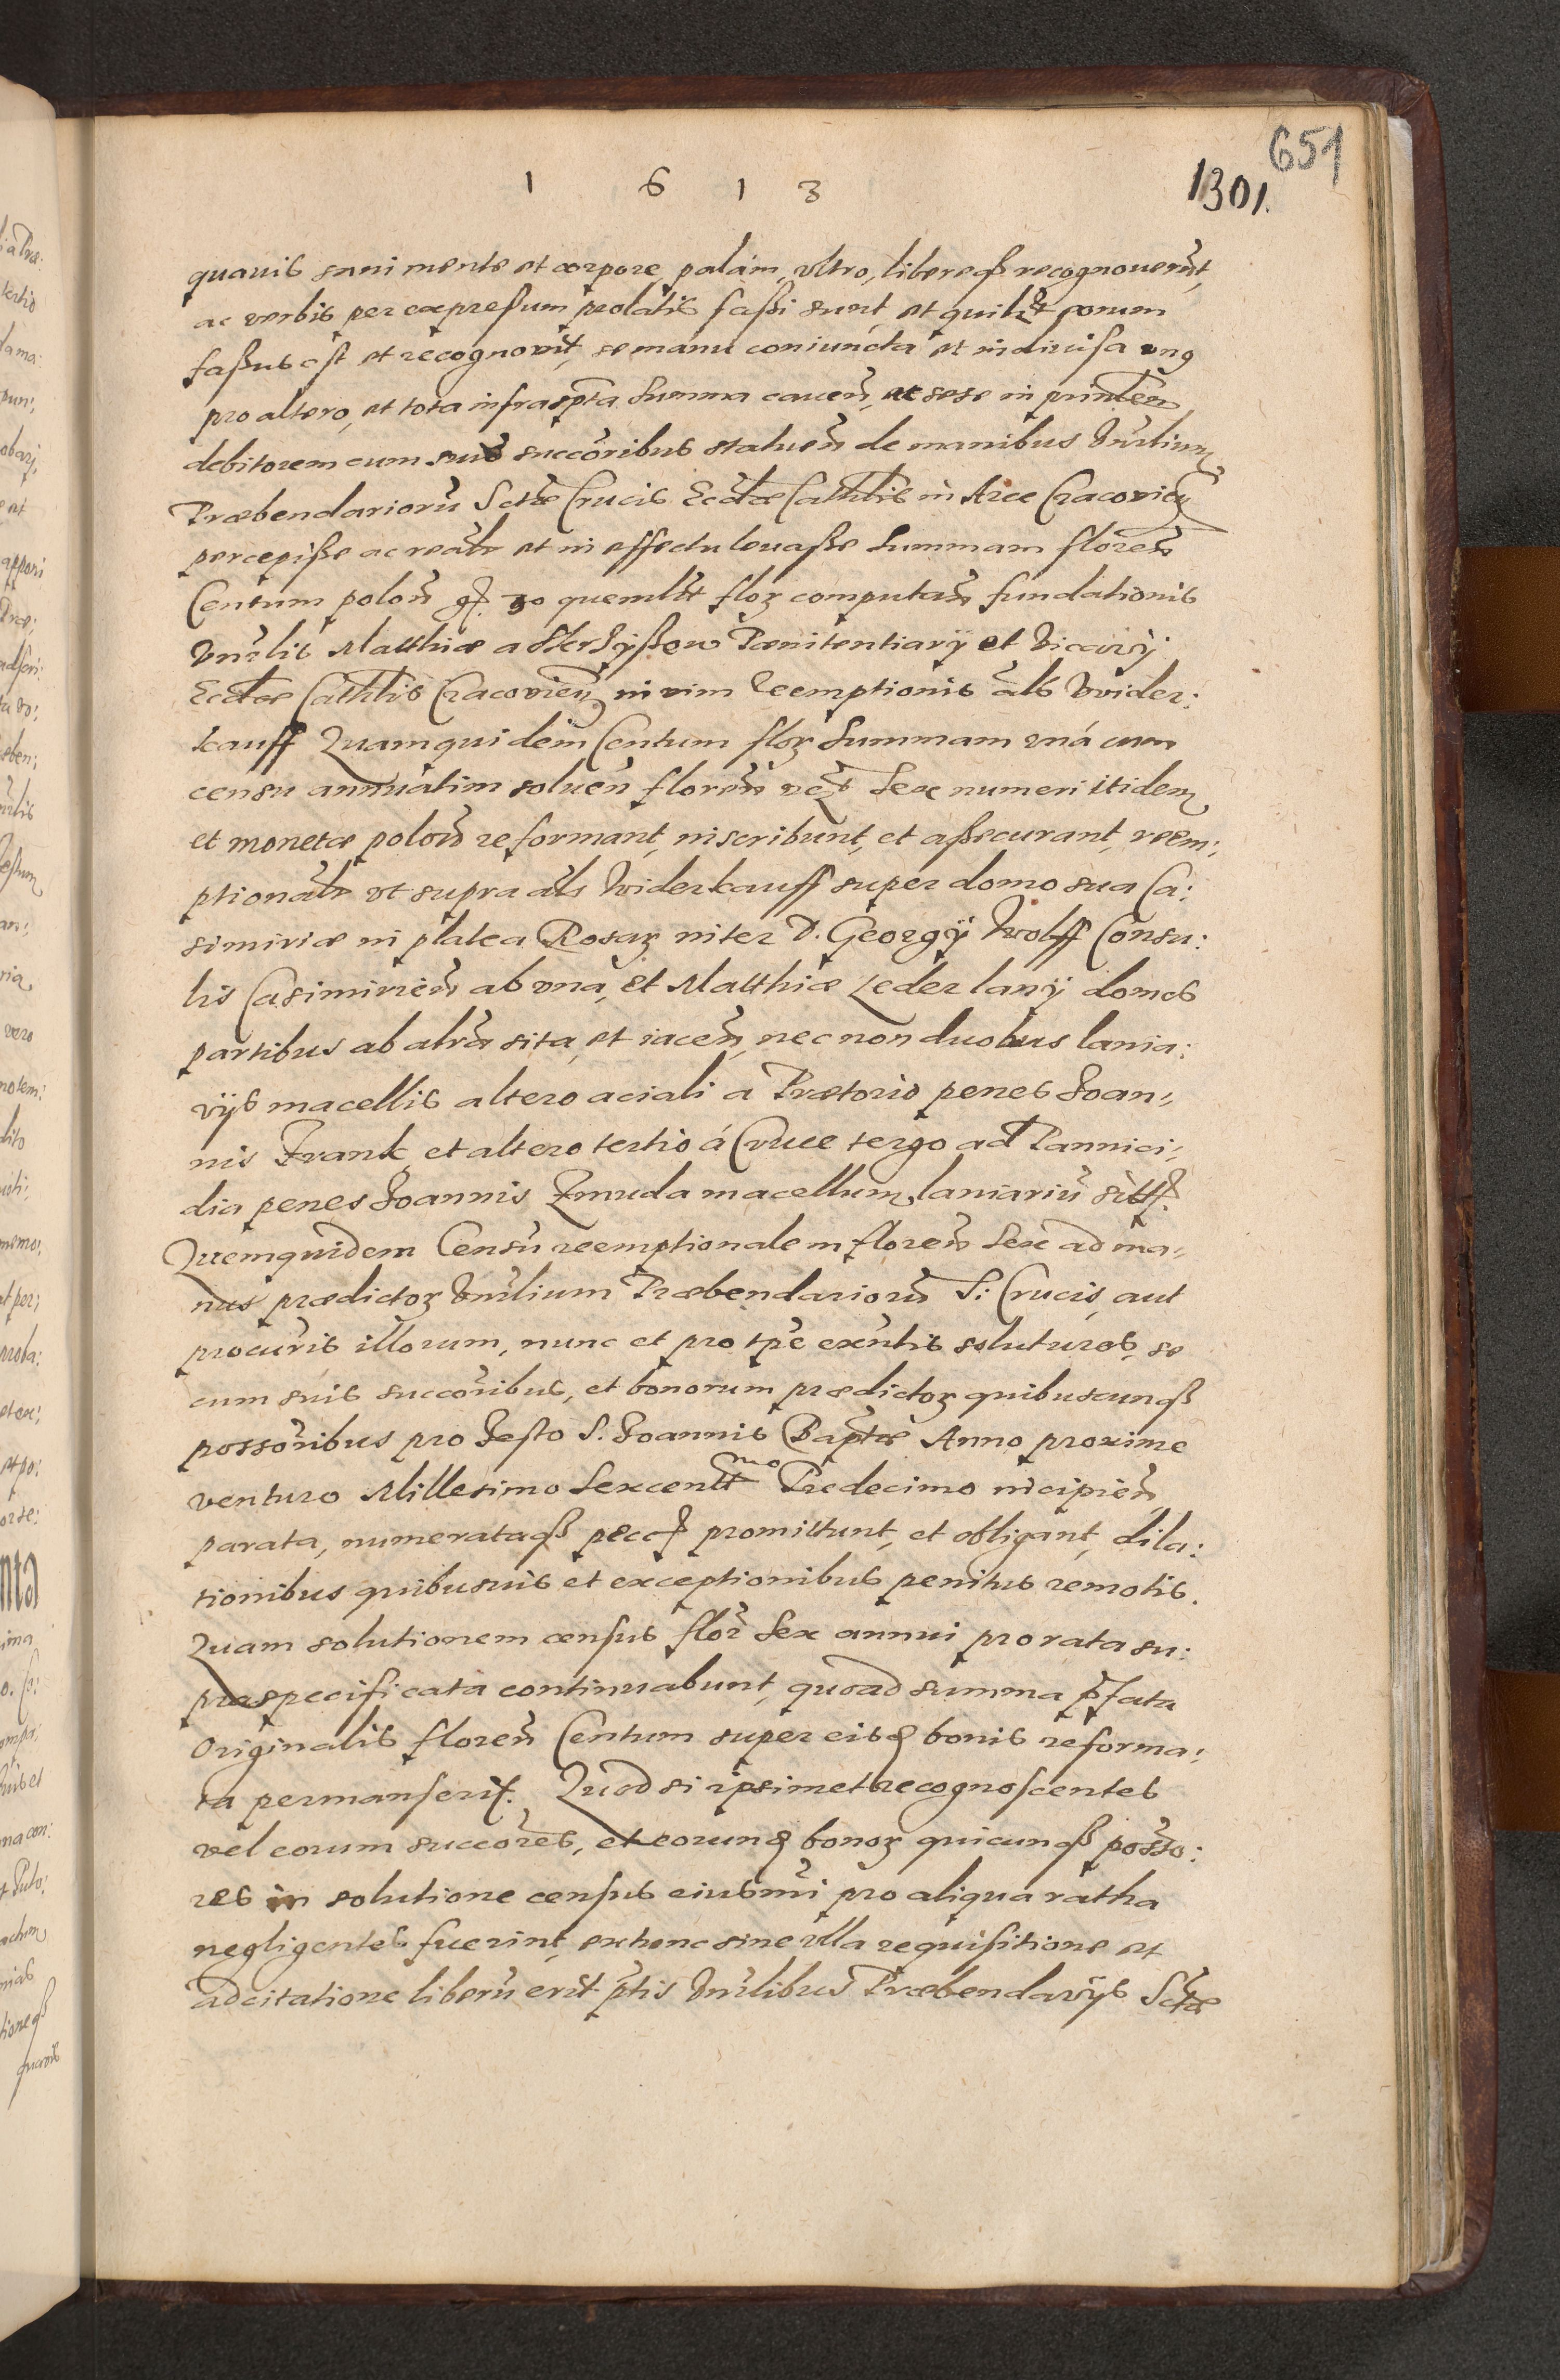 651
1 6 1 3
1301.
quauis sani mente et corpore, palàm, vltro, libereqß recognouerut,
ac verbis per expressum prolatis faßi sunt, et quilt eorum
faßus est et recognovit, se manu coniuncta et indivisa vng
pro altero, et tota infrascpta Summa cauen, ac sese in printem
debitorem cum suis succoribus statuen de manibus Vnrlium
Præbendarioru Sctæ Crucis Eccliæ Cathlis in Arce Cracovien
percepiße ac realr et in effectu leuaße Summam floren
Centum polon gſ. 30 quemlbt flor computan fundationis
Vnrlis Matthiæ a Pænitentiarÿ et Vicarÿ
Eccliæ Cathlis Cracovien in vim reemptionis als Wider:
kauff Quamquidem Centum flor Summam vná cum
censu annuatim soluen floren vct Sex numeri itidem
et monetæ polon reformant, inscribunt, et aßecurant, reem:
ptionalr vt supra als Widerkauff super domo sua Ca:
simiriæ in platea Rosar inter D. Georgÿ Wolff Consu:
lis Casimirien ab vna, et Matthiæ Leder lanÿ domos
partibus ab altra sita, et iacen, nec non duobus lania:
rijs macellis altero aciali a Prætorio penes Ioan:
nis Frank, et altero tertio á Cruce tergo ad Pannici:
dia penes Ioannis Zmuda macellum laniariu sitt.
Quemquidem Censu reemptionalem floren Sex ad ma:
nus prædictor Vnrlium Præbendarioru S: Crucis, aut
procuris illorum, nunc et pro tpe exntis soluturos, se
cum suis succoribus, et bonorum prædictor quibuscunqß
possoribus pro Festo S. Ioannis Baptæ Anno proxime
venturo Millesimo Sexcentmo Tredecimo incipien
parata, numerataqß pecc promittunt, et obligant, dila:
tionibus quibusuis et exceptionibus penitus remotis.
Quam solutionem census flor Sex annui pro rata su:
praspecificata continuabunt, quoad summa pfata
Originalis floren Centum super eisd bonis reforma:
ta permanserit. Quod si ipsimet recognoscentes
vel eorum succores, et eorund bonor quicunqß posso:
res in solutione census eiusmi pro aliqua ratha
negligentes fuerint, extunc sine vlla requisitione et
adcitatione liberu erit ptis Vnrlibus Præbendarÿs Sctæ